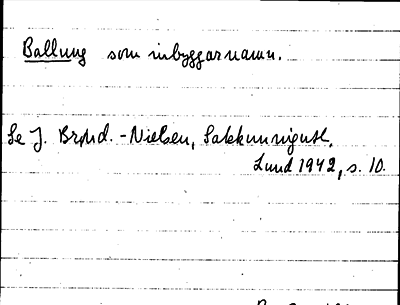 Ballung som inbyggarnamn.
Se J. Brønd.-Nielsen,
Lund 1942, s. 10.